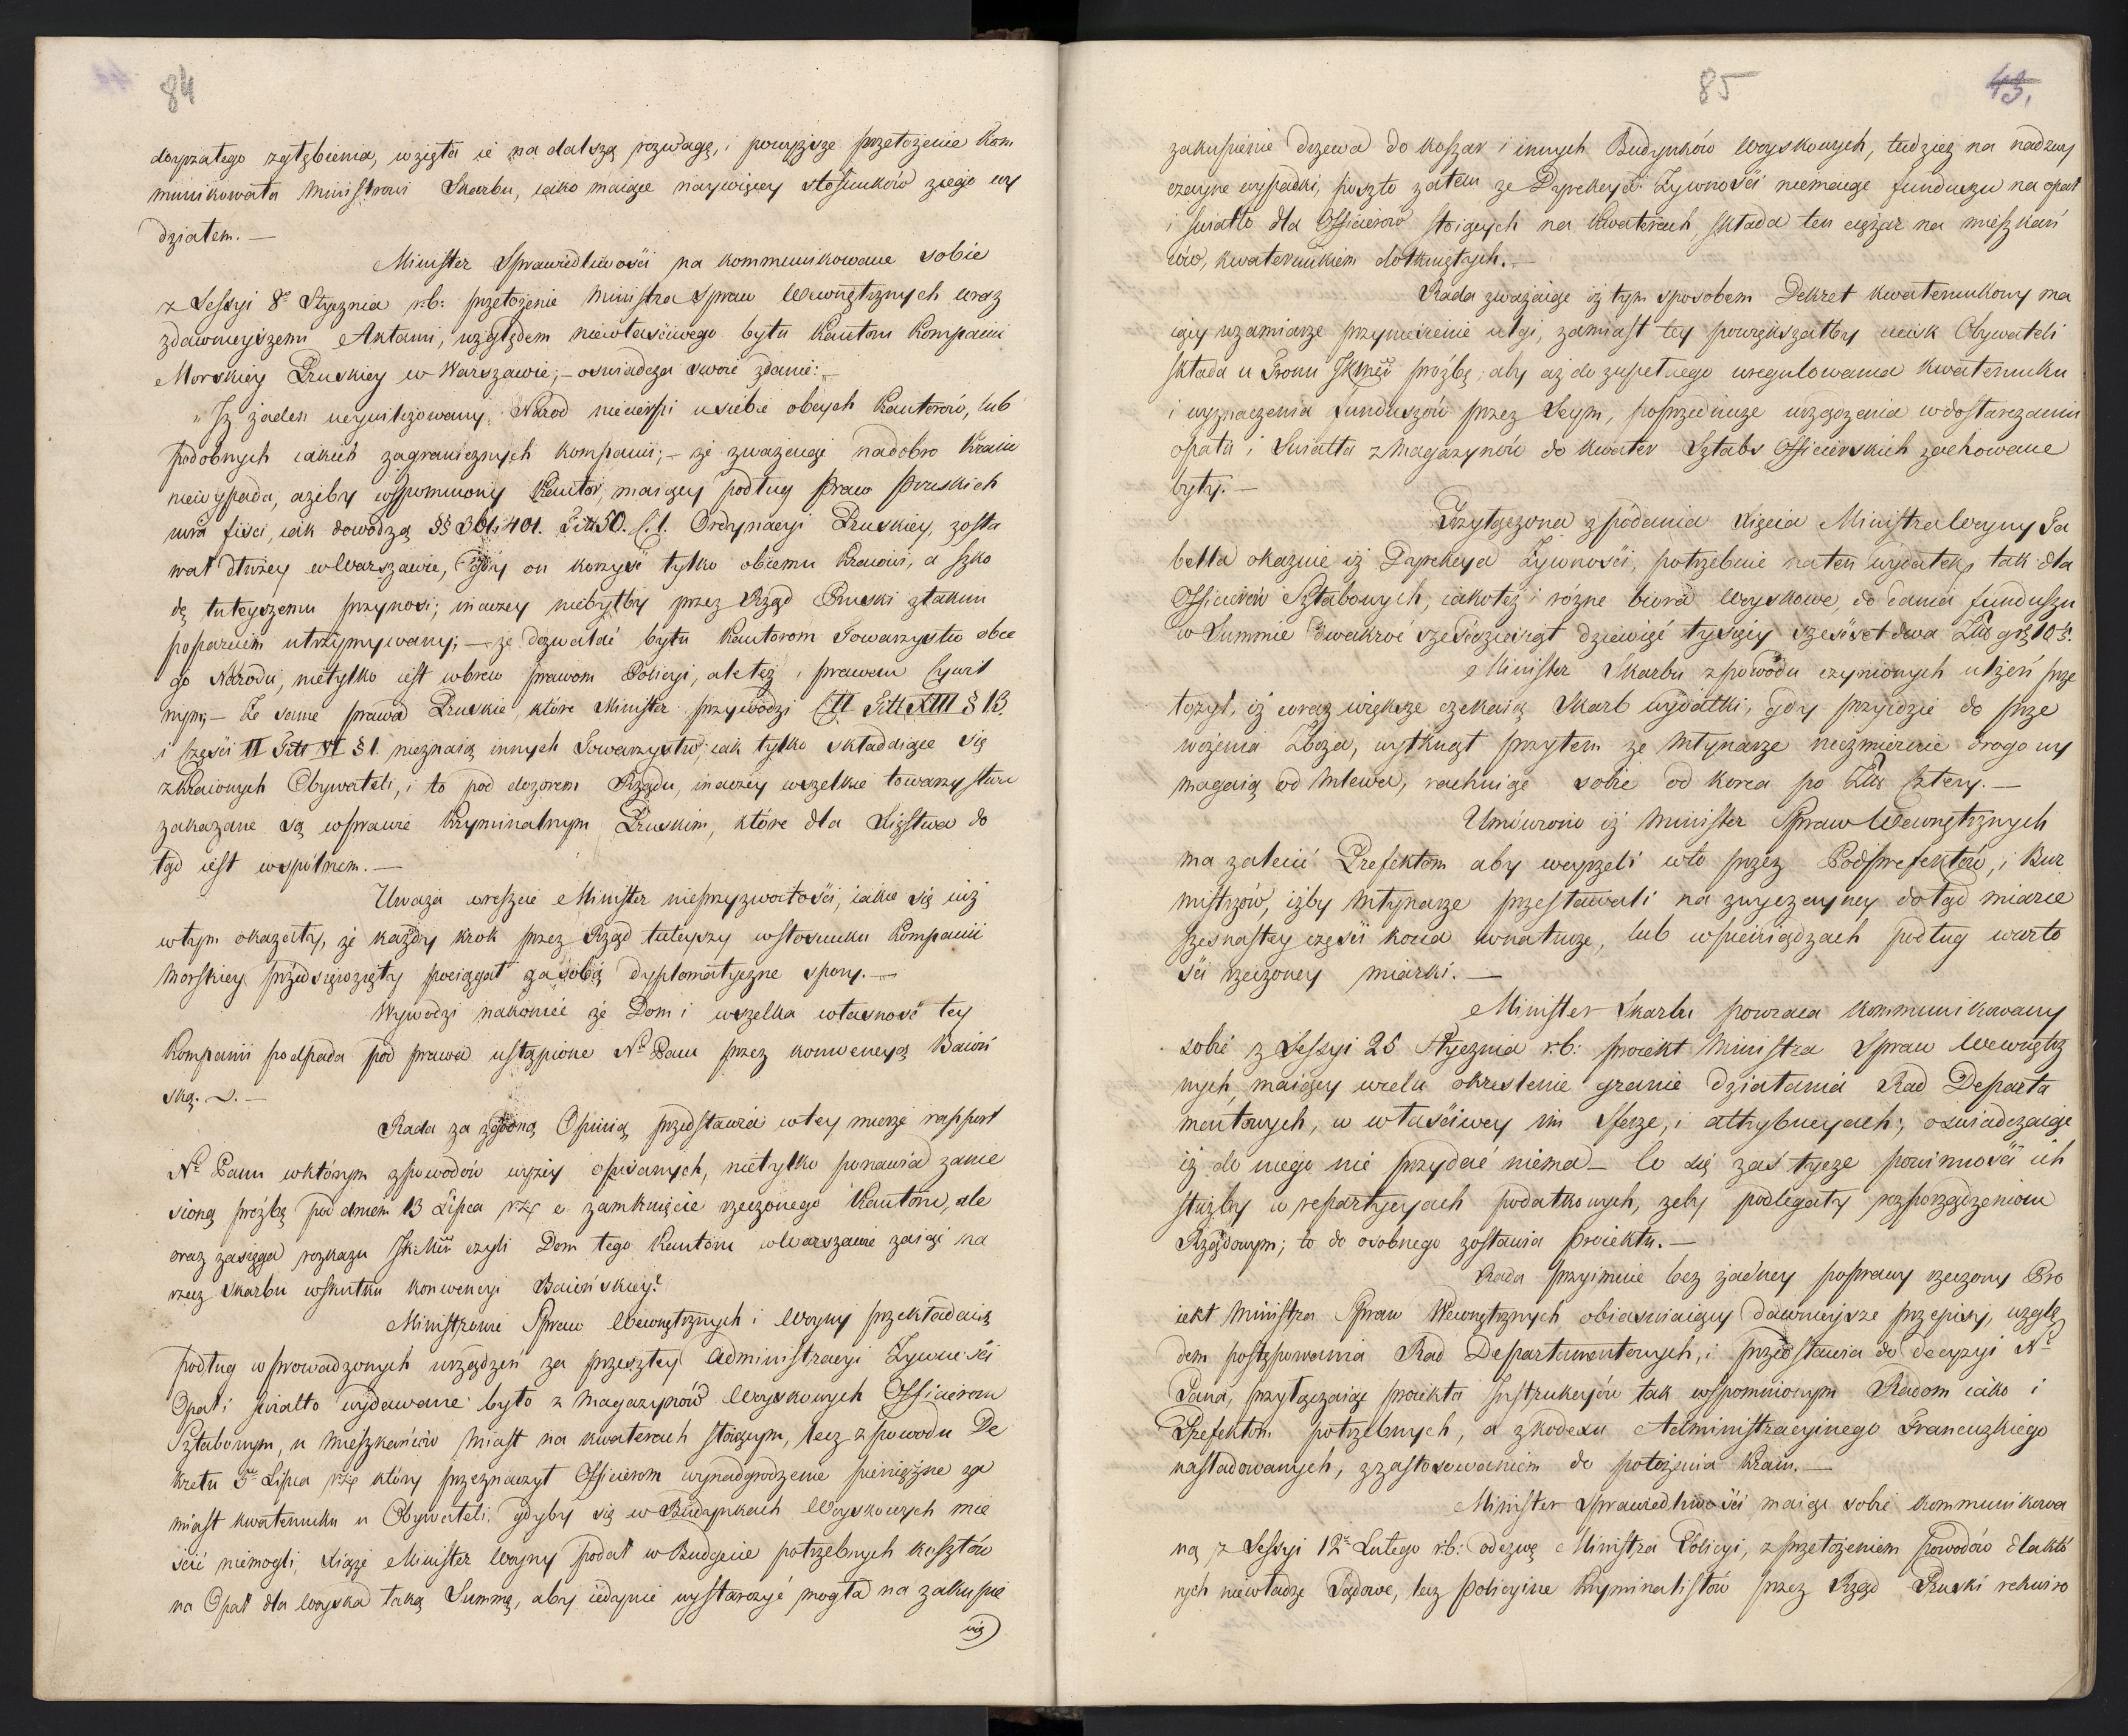 84
dozyzatego zgłębienia, wzięła ie na dalszą rozwagę, i powyższe przełożenie Kom
munikowała Ministrowi Skarbu, iako maiące naywięcey stosunków z iego wy
działem. —
Minister Sprawiedliwości na kommunikowane sobie
z Sessyi 8º Stycznia r:b: przełożenie Ministra Spraw Wewnętrznych wraz
z dawnieyszemi Aktami, względem niewłaściwego bytu Kantoru Kompanii
Morskiey Pruskiey w Warszawie, – oświadcza swoie zdanie: –
„Iż żaden ucywilizowany Naród niecierpi u siebie obcych Kantorów, lub
podobnych iakich zagranicznych kompanii; – że zważaiąc na dobro Kraiu
niewypada, ażeby wspomniony Kantor, maiący podług Praw Pruskich
iura fisci, iak dowodzą §§ 361. 401. Titt 50. C. 1. Ordynacyi Pruskiey, zosta
wał dłużey w Warszawie, gdy on korzyść tylko obcemu Kraiowi, a szko
dę tuteyszemu przynosi; inaczey niebyłby przez Rząd Pruski z takim
poparciem utrzymywany; – że dozwalać bytu Kantorom Towarzystw obce
go Narodu, nietylko iest wbrew prawom Policyi, ale też i prawom Cywil
nym; – Że same prawa Pruskie, które Minister przywodzi C II Titt XIII § 13.
i Części II Titt VI § 1. nieznaią innych Towarzystw, iak tylko składaiące się
z Kraiowych Obywateli, i to pod dozorem Rządu, inaczey wszelkie towarzystwa
zakazane są w prawie Kryminalnym Pruskim, które dla Xięstwa do
tąd iest wspólnem. —
Uważa wreszcie Minister nieprzyzwoitości, iakie się iuż
w tym okazały, że każdy krok przez Rząd tuteyszy w stosunku Kompanii
Morskiey przedsięwzięty pociągał za sobą dyplomatyczne spory. —
Wywodzi nakoniec że Dom i wszelka własność tey
Kompanii podpada pod prawa ustąpione Nº Panu przez konwencyą Baioń
ską. „. —
Rada za zgodną Opinią przedstawia w tey mierze rapport
Nº Panu w którym z powodów wyżey opisanych, nietylko ponawia zanie
sioną prośbę pod dniem 13 Lipca r:z: o zamknięcie rzeczonego Kantoru, ale
oraz zasięga rozkazu JKMci czyli Dom tego Kantoru w Warszawie zaiąć na
rzecz Skarbu w skutku konwencyi Baiońskiey?
Ministrowie Spraw Wewnętrznych i Woyny przekładaią
podług wprowadzonych urządzeń za przeszłey Administracyi Żywności
Opał i światło wydawane było z Magazynów Woyskowych Officierom
Sztabowym, u Mieszkańców Miast na kwaterach stoiącym, lecz z powodu De
kretu 5º Lipca r:z: który przeznaczył Officierom wynadgrodzenie pieniężne za
miast kwaterunku u Obywateli, gdyby się w Budynkach Woyskowych mie
ścić niemogli, Xiąże Minister Woyny podał w Budgecie potrzebnych kosztów
na Opał dla Woyska taką Summę, aby iedynie wystarczyć mogła na zakupie
nie)
85
43.
zakupienie drzewa do koszar i innych Budynków Woyskowych, tudzież na nadzwy
czayne wypadki, poszło zatem że Dyrekcya Żywności niemaiąc funduszu na opał
i światło dla Officierów stoiących na kwaterach, składa ten ciężar na mieszkań
ców, kwaterunkiem dotkniętych. —
Rada zważaiąc iż tym sposobem Dekret kwaterunkowy ma
iący w zamiarze przyniesienie ulgi, zamiast tey powiększałby ucisk Obywateli
składa u Tronu JKMci prośbę, aby aż do zupełnego uregulowania kwaterunku
i wyznaczenia funduszów przez Seym, poprzednicze urządzenia w dostarczaniu
opału i światła z Magazynów do kwater Sztabs Officierskich zachowane
były. —
Przyłączona z podania Xięcia Ministra Woyny Ta
bella okazuie iż Dyrekcya Żywności, potrzebuie na ten wydatek, tak dla
Officierów Sztabowych, iakoteż i różne biura Woyskowe, do dania funduszu
w Summie dwakroć sześćdziesiąt dziewięć tysięcy sześćset dwa Złł. gr. 10½.
Minister Skarbu z powodu czynionych ulżeń prze
łożył, iż coraz większe czekaią Skarb wydatki, gdy przyidzie do prze
wożenia Zboża, wytknął przytem że Młynarze niezmiernie drogo wy
magaią od mlewa, rachuiąc sobie od korca po Złł. cztery. —
Umówiono iż Minister Spraw Wewnętrznych
ma zalecić Prefektom aby weyrzeli w to przez Podprefektów, i Bur
mistrzów, iżby Młynarze przestawali na zwyczayney dotąd miarze
szesnastey części korca w naturze, lub w pieniądzach podług warto
ści rzeczoney miarki. —
Minister Skarbu powraca kommunikowany
sobie z Sessyi 25 Stycznia r:b: proiekt Ministra Spraw Wewnętrz
nych, maiący w celu określenie granic działania Rad Departa
mentowych, w właściwey im Sferze, i attrybucyach; oświadczaiąc
iż do niego nic przydać niema – Co się zaś tycze powinności ich
służby w repartycyach podatkowych, żeby podlegały rozporządzeniom
Rządowym; to do osobnego zostawia proiektu. —
Rada przyimuie bez żadney poprawy rzeczony Pro
iekt Ministra Spraw Wewnętrznych, obiaśniaiący dawnieysze przepisy, wzglę
dem postępowania Rad Departamentowych, i przedstawia do decyzyi Nº
Pana, przyłączaiąc proiekta Instrukcyów tak wspomnionym Radom iako i
Prefektom potrzebnych, a z kodexu Administracyinego Francuzkiego
naśladowanych, z zastosowaniem do położenia Kraiu. —
Minister Sprawiedliwości maiąc sobie kommunikowa
ną z Sessyi 12º Lutego r:b: odezwę Ministra Policyi, z przełożeniem powodów dla któ
rych niewładze Sądowe, lecz Policyine Kryminalistów przez Rząd Pruski rekwiro